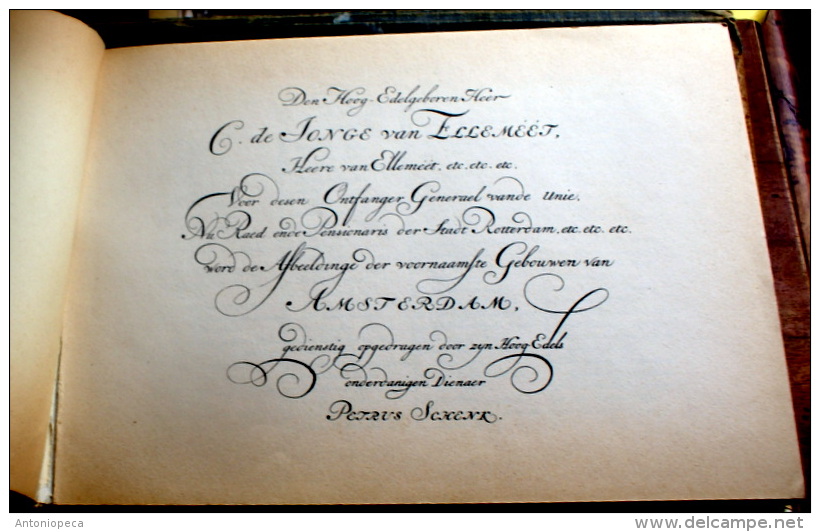 Den Hoog-Edelgeboren Heer
C. de JONGE van ELLEMEËT,
Heere van Ellemeët, etc. etc. etc.
Voor desen Ontfanger Generael vande Unie,
Nu Raed ende Pensionaris der Stadt Rotterdam, etc. etc. etc.
word de Afbeeldinge der voornaamste Gebouwen van
AMSTERDAM,
gedienstig opgedragen door zyn Hoog Edels
onderdanigen Dienaer
PETRUS SCHENK.
Antoniopeca
http://www.delcampe.net